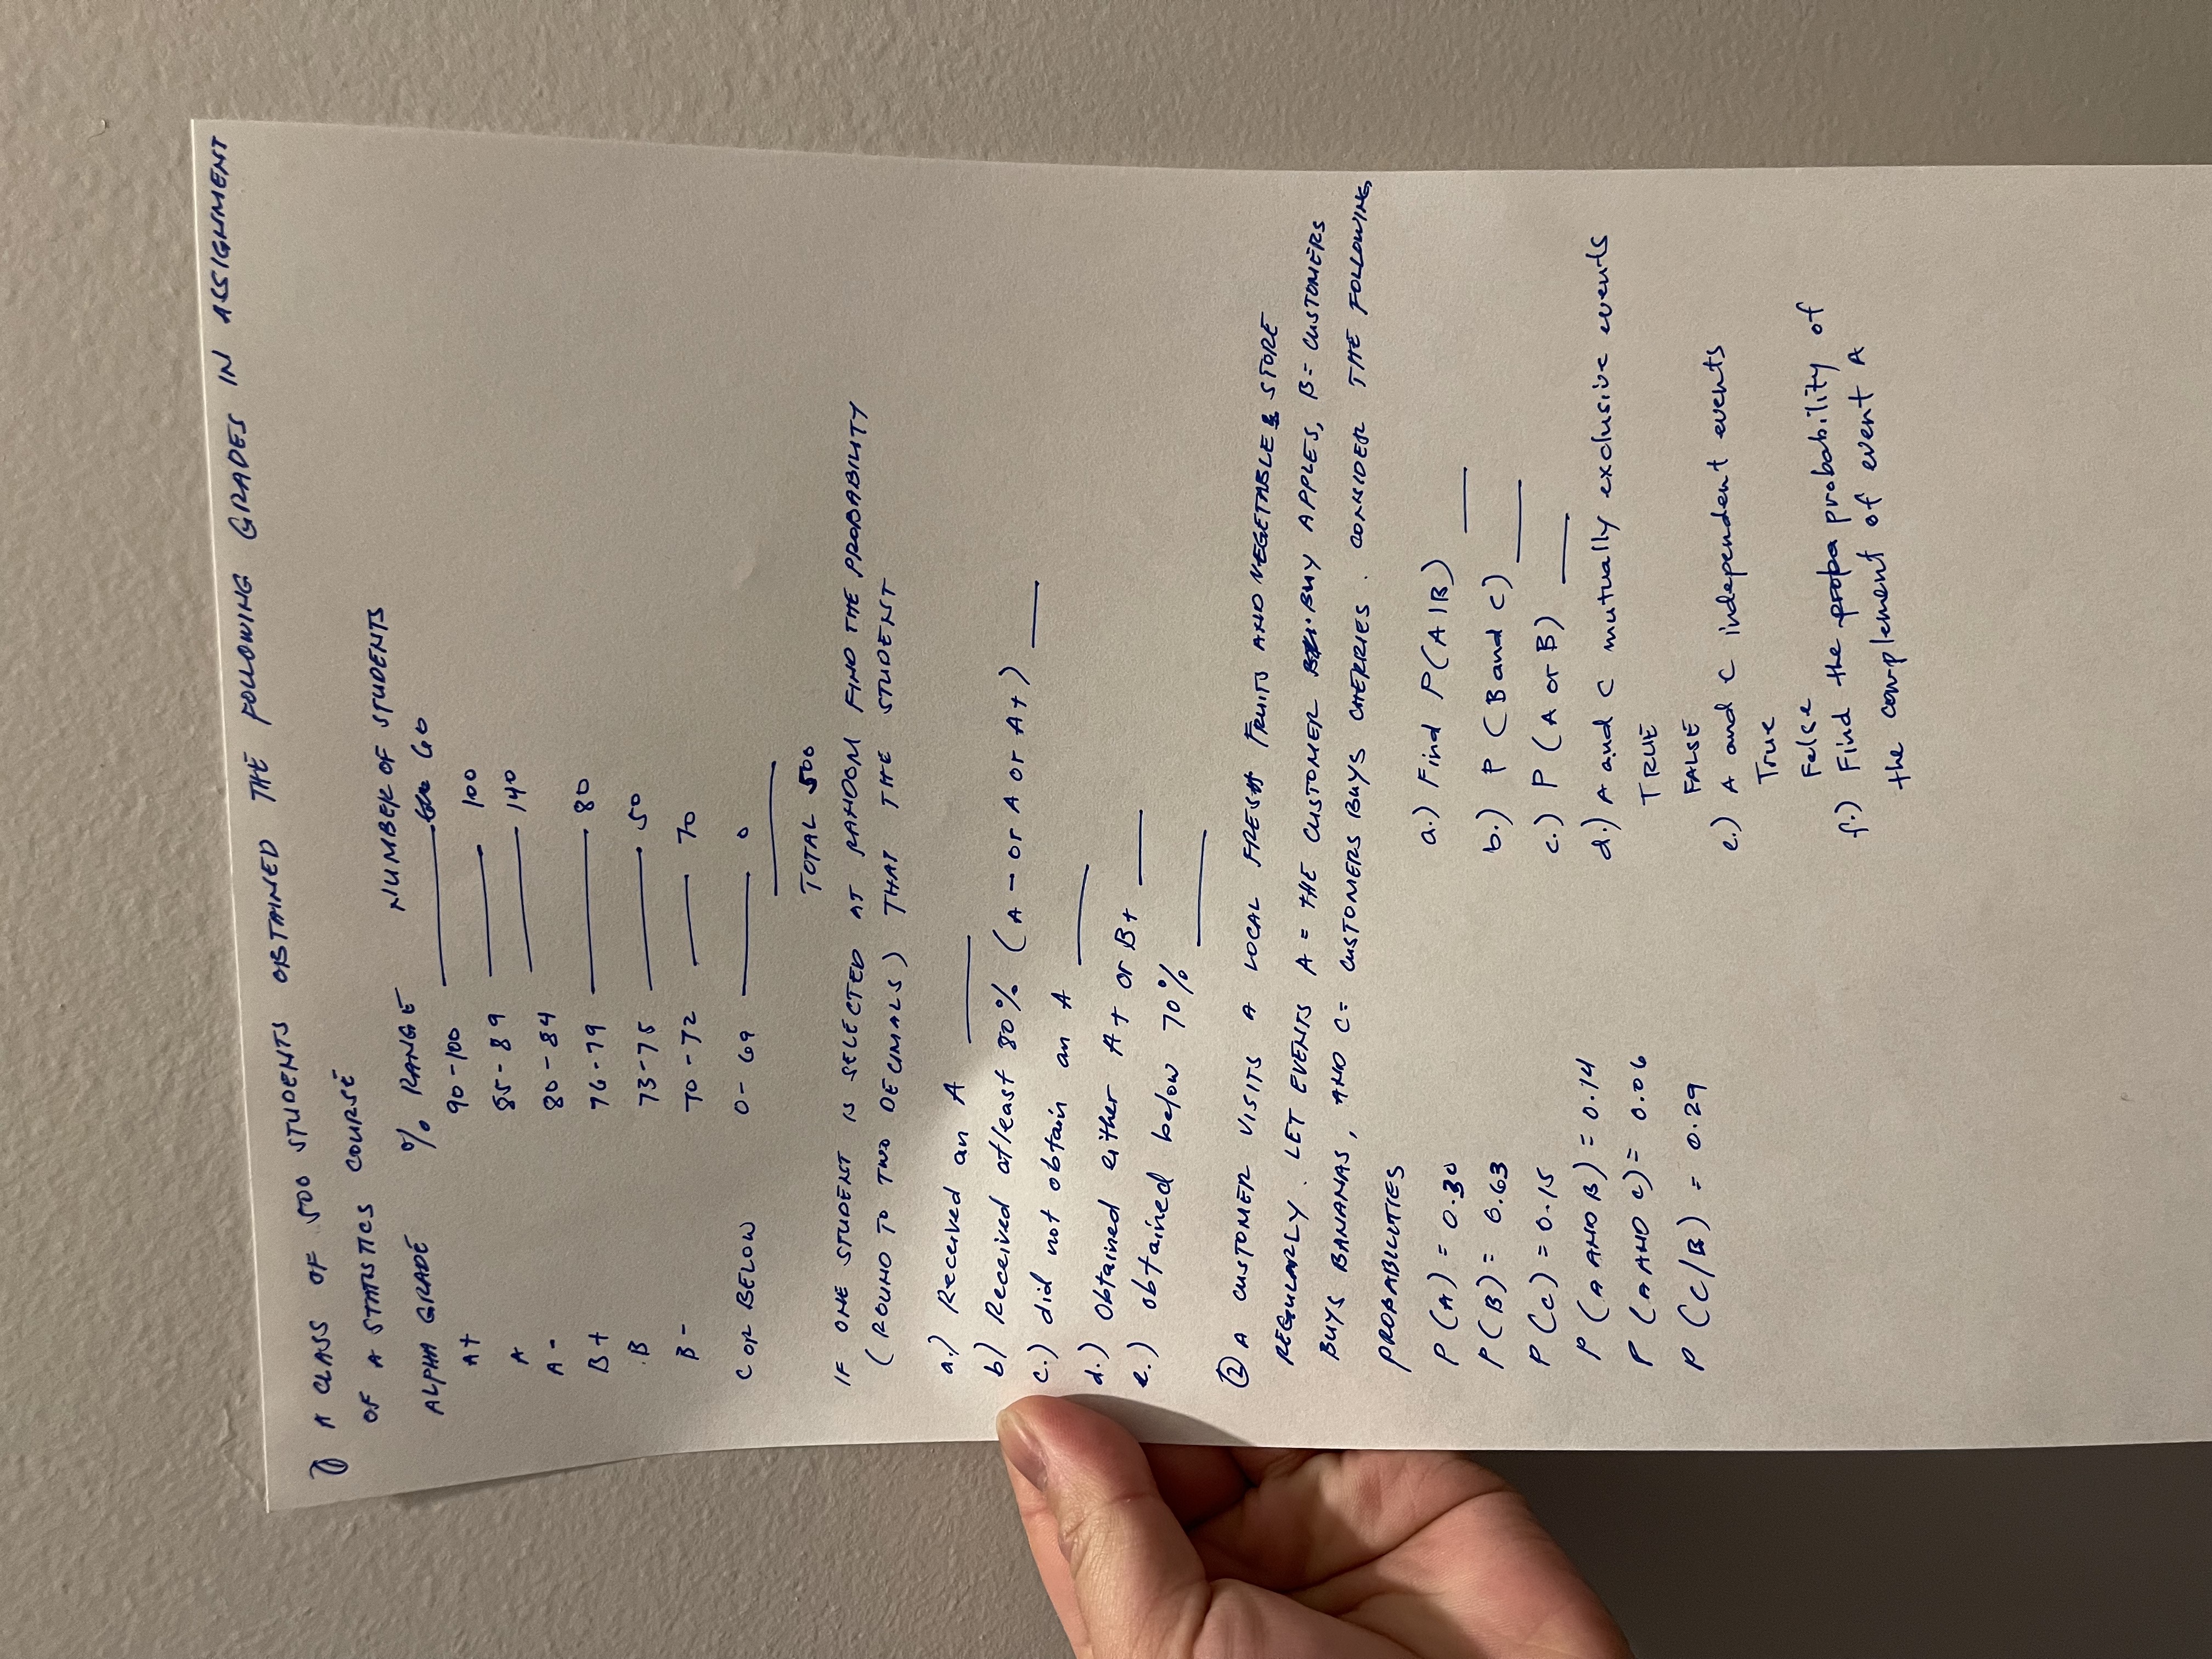 ① A CLASS OF 500 STUDENTS OBTAINED THE FOLLOWING GRADES IN ASSIGNMENT
OF A STATISTICS COURSE
ALPHA GRADE % RANGE NUMBER OF STUDENTS
A+ 90-100 60
A 85-89 100
A- 80-84 140
B+ 76-79 80
B 73-75 50
B- 70-72 70
C OR BELOW 0-69 0
TOTAL 500
IF ONE STUDENT IS SELECTED AT RANDOM FIND THE PROBABILITY
(ROUND TO TWO DECIMALS) THAT THE STUDENT
a.) Received an A
b) Received atleast 80% (A- or A or A+)
c.) did not obtain an A
d.) Obtained either A+ or B+
e.) obtained below 70%
② A CUSTOMER VISITS A LOCAL FRESH FRUITS AND VEGETABLES STORE
REGULARLY. LET EVENTS A = THE CUSTOMER BUY APPLES, B = CUSTOMERS
BUYS BANANAS, AND C = CUSTOMERS BUYS CHERRIES. CONSIDER THE FOLLOWING
PROBABILITIES
P(A) = 0.30
P(B) = 0.63
P(C) = 0.15
P(A AND B) = 0.14
P(A AND C) = 0.06
P(C/B) = 0.29
a.) Find P(A|B)
b.) P(B and C)
c.) P(A or B)
d.) A and C mutually exclusive events
TRUE
FALSE
e.) A and C independent events
True
False
f.) Find the probability of
the complement of event A